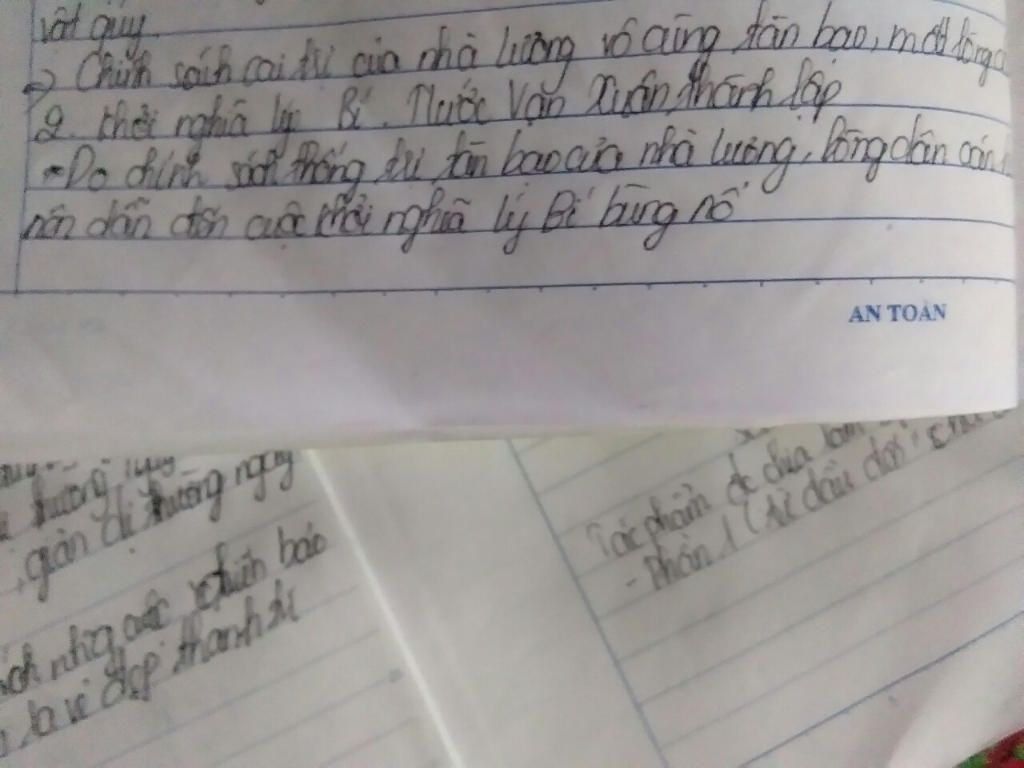 vật quý.
=> Chính sách cai trị của nhà lương vô cùng tàn bạo, mất lòng
2. Khởi nghĩa lý Bí. Nước Vạn Xuân thành lập
- Do chính sách thống trị tàn bạo của nhà lương, lòng dân oán
nên dẫn đến cuộc khởi nghĩa lý Bí bùng nổ
AN TOÀN
giản dị thường ngày
những cuộc chiến báo
là vẻ đẹp thanh
Tác phẩm đc chia làm
- Phần 1 (từ đầu đến